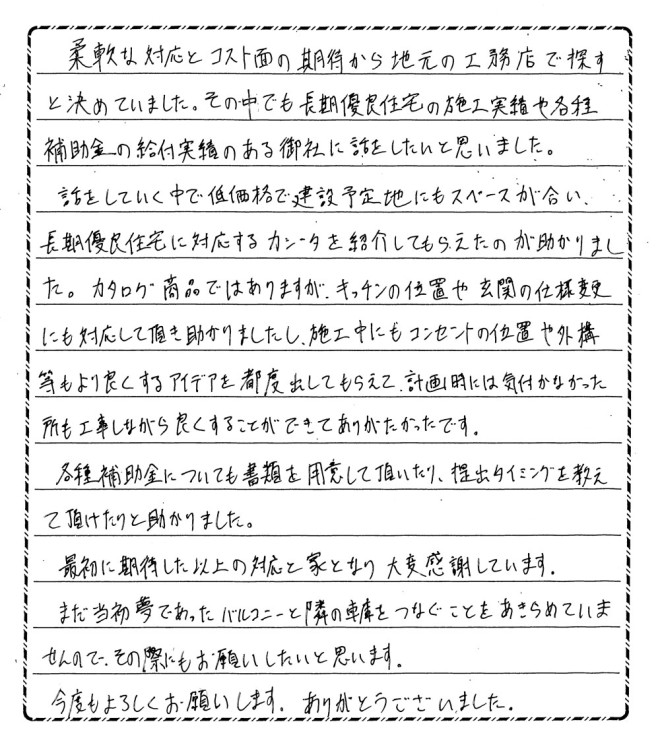 柔軟な対応とコスト面の期待から地元の工務店で探す
と決めていました。その中でも長期優良住宅の施工実績や各種
補助金の給付実績のある御社に話をしたいと思いました。
話をしていく中で低価格で建設予定地にもスペースが合い、
長期優良住宅に対応するカンータを紹介してもらえたのが助かりまし
た。カタログ商品ではありますが、キッチンの位置や玄関の仕様変更
にも対応して頂き助かりましたし、施工中にもコンセントの位置や外構
等もより良くするアイデアを都度出してもらえて、計画時には気付かなかった
所も工事しながら良くすることができてありがたかったです。
各種補助金についても書類を用意して頂いたり、提出タイミングを教え
て頂けたりと助かりました。
最初に期待した以上の対応と家となり大変感謝しています。
まだ当初夢であったバルコニーと隣の車庫をつなぐことをあきらめていま
せんので、その際にもお願いしたいと思います。
今度もよろしくお願いします。ありがとうございました。